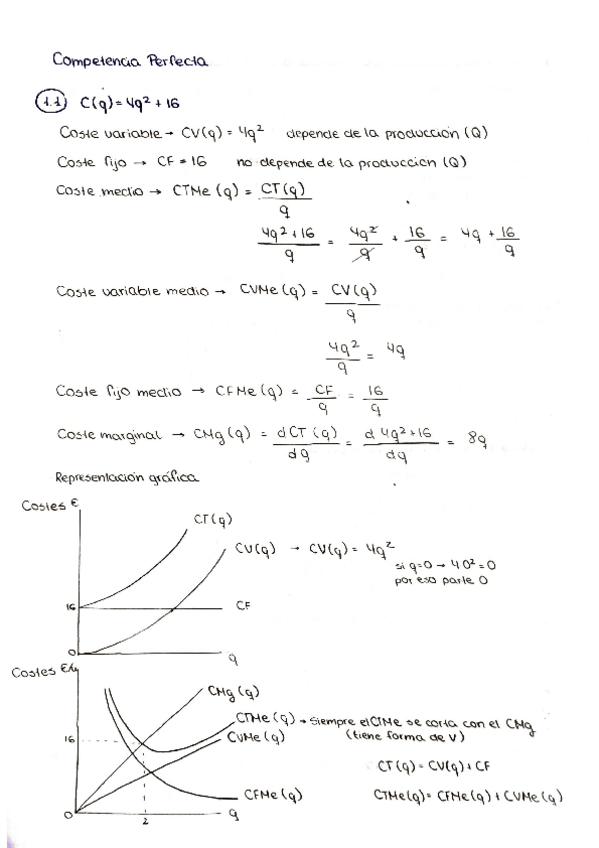 Competencia Perfecta
1.1 C(q) = 4q² + 16
Coste variable → CV(q) = 4q² depende de la producción (Q)
Coste fijo → CF = 16 no depende de la producción (Q)
Coste medio → CTMe (q) = CT(q) / q
4q² + 16 / q = 4q² / q + 16 / q = 4q + 16 / q
Coste variable medio → CVMe (q) = CV(q) / q
4q² / q = 4q
Coste fijo medio → CFMe (q) = CF / q = 16 / q
Coste marginal → CMg (q) = d CT (q) / dq = d 4q² + 16 / dq = 8q
Representación gráfica
Costes €
CT(q)
CV(q) → CV(q) = 4q²
si q=0 → 4·0² = 0
por eso parte 0
16
CF
0
q
Costes €/u
CMg (q)
CTMe (q) → siempre el CTMe se corta con el CMg
(tiene forma de V)
CVMe (q)
16
CT (q) = CV(q) + CF
CFMe (q)
CTMe(q) = CFMe(q) + CVMe(q)
0
2
q